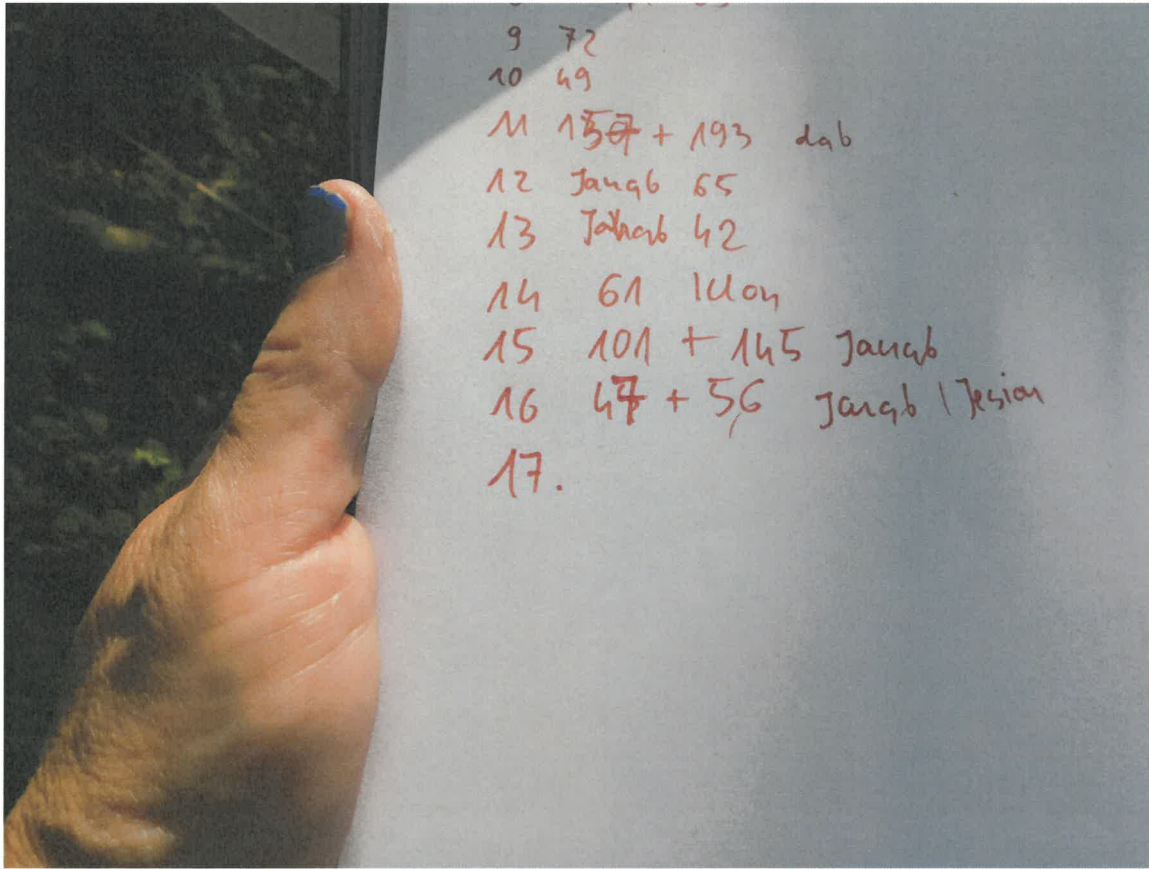 9 72
10 49
11 157 + 193 dąb
12 Jarząb 65
13 Jarząb 42
14 61 Klon
15 101 + 145 Jarząb
16 47 + 56 Jarząb / Jesion
17.